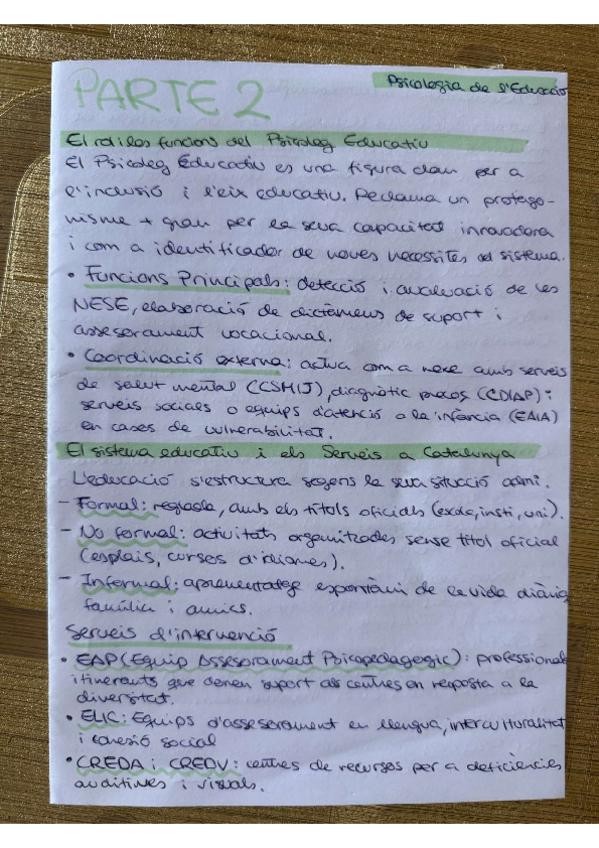 Psicologia de l'Educació
PARTE 2
El rol i les funcions del Psicoleg Educatiu
El Psicoleg Educatiu es una figura clau per a
l'inclusió i l'eix educatiu. Reclama un protago-
nisme + gran per la seva capacitat innovadora
i com a identificador de noves necessites del sistema.
• Funcions Principals: detecció i avaluació de les
NESE, elaboració de dictàmens de suport i
assesorament vocacional.
• Coordinació externa: actua com a nexe amb serveis
de salut mental (CSMIJ), diagnòtic precoç (CDIAP) i
serveis socials o equips d'atenció a la infància (EAIA)
en casos de vulnerabilitat.
El sistema educatiu i els Serveis a Catalunya
L'educació s'estructura segons la seva situció admi.
- Formal: reglada, amb els títols oficials (escola, insti, uni).
- No formal: activitats organitzades sense títol oficial
(esplais, cursos d'idiomes).
- Informal: aprenentatge espontàni de la vida diària,
família i amics.
Serveis d'intervenció
• EAP (Equip Assesorament Psicopedagogic): professionals
itinerants que donen suport als centres en resposta a la
diversitat.
• ELIC: Equips d'assesorament en llengua, interculturalitat
i cohesió social
• CREDA i CREDV: centres de recursos per a deficiències
auditives i visuals.